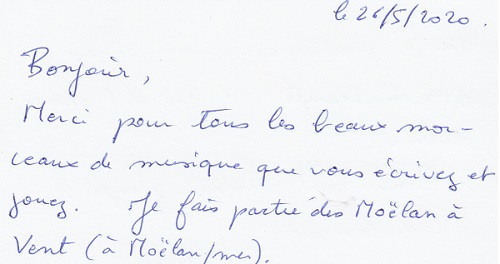 le 26/5/2020.
Bonjour,
Merci pour tous les beaux mor-
ceaux de musique que vous écrivez et
jouez. Je fais partie des Moëlan à
Vent (à Moëlan/mer).